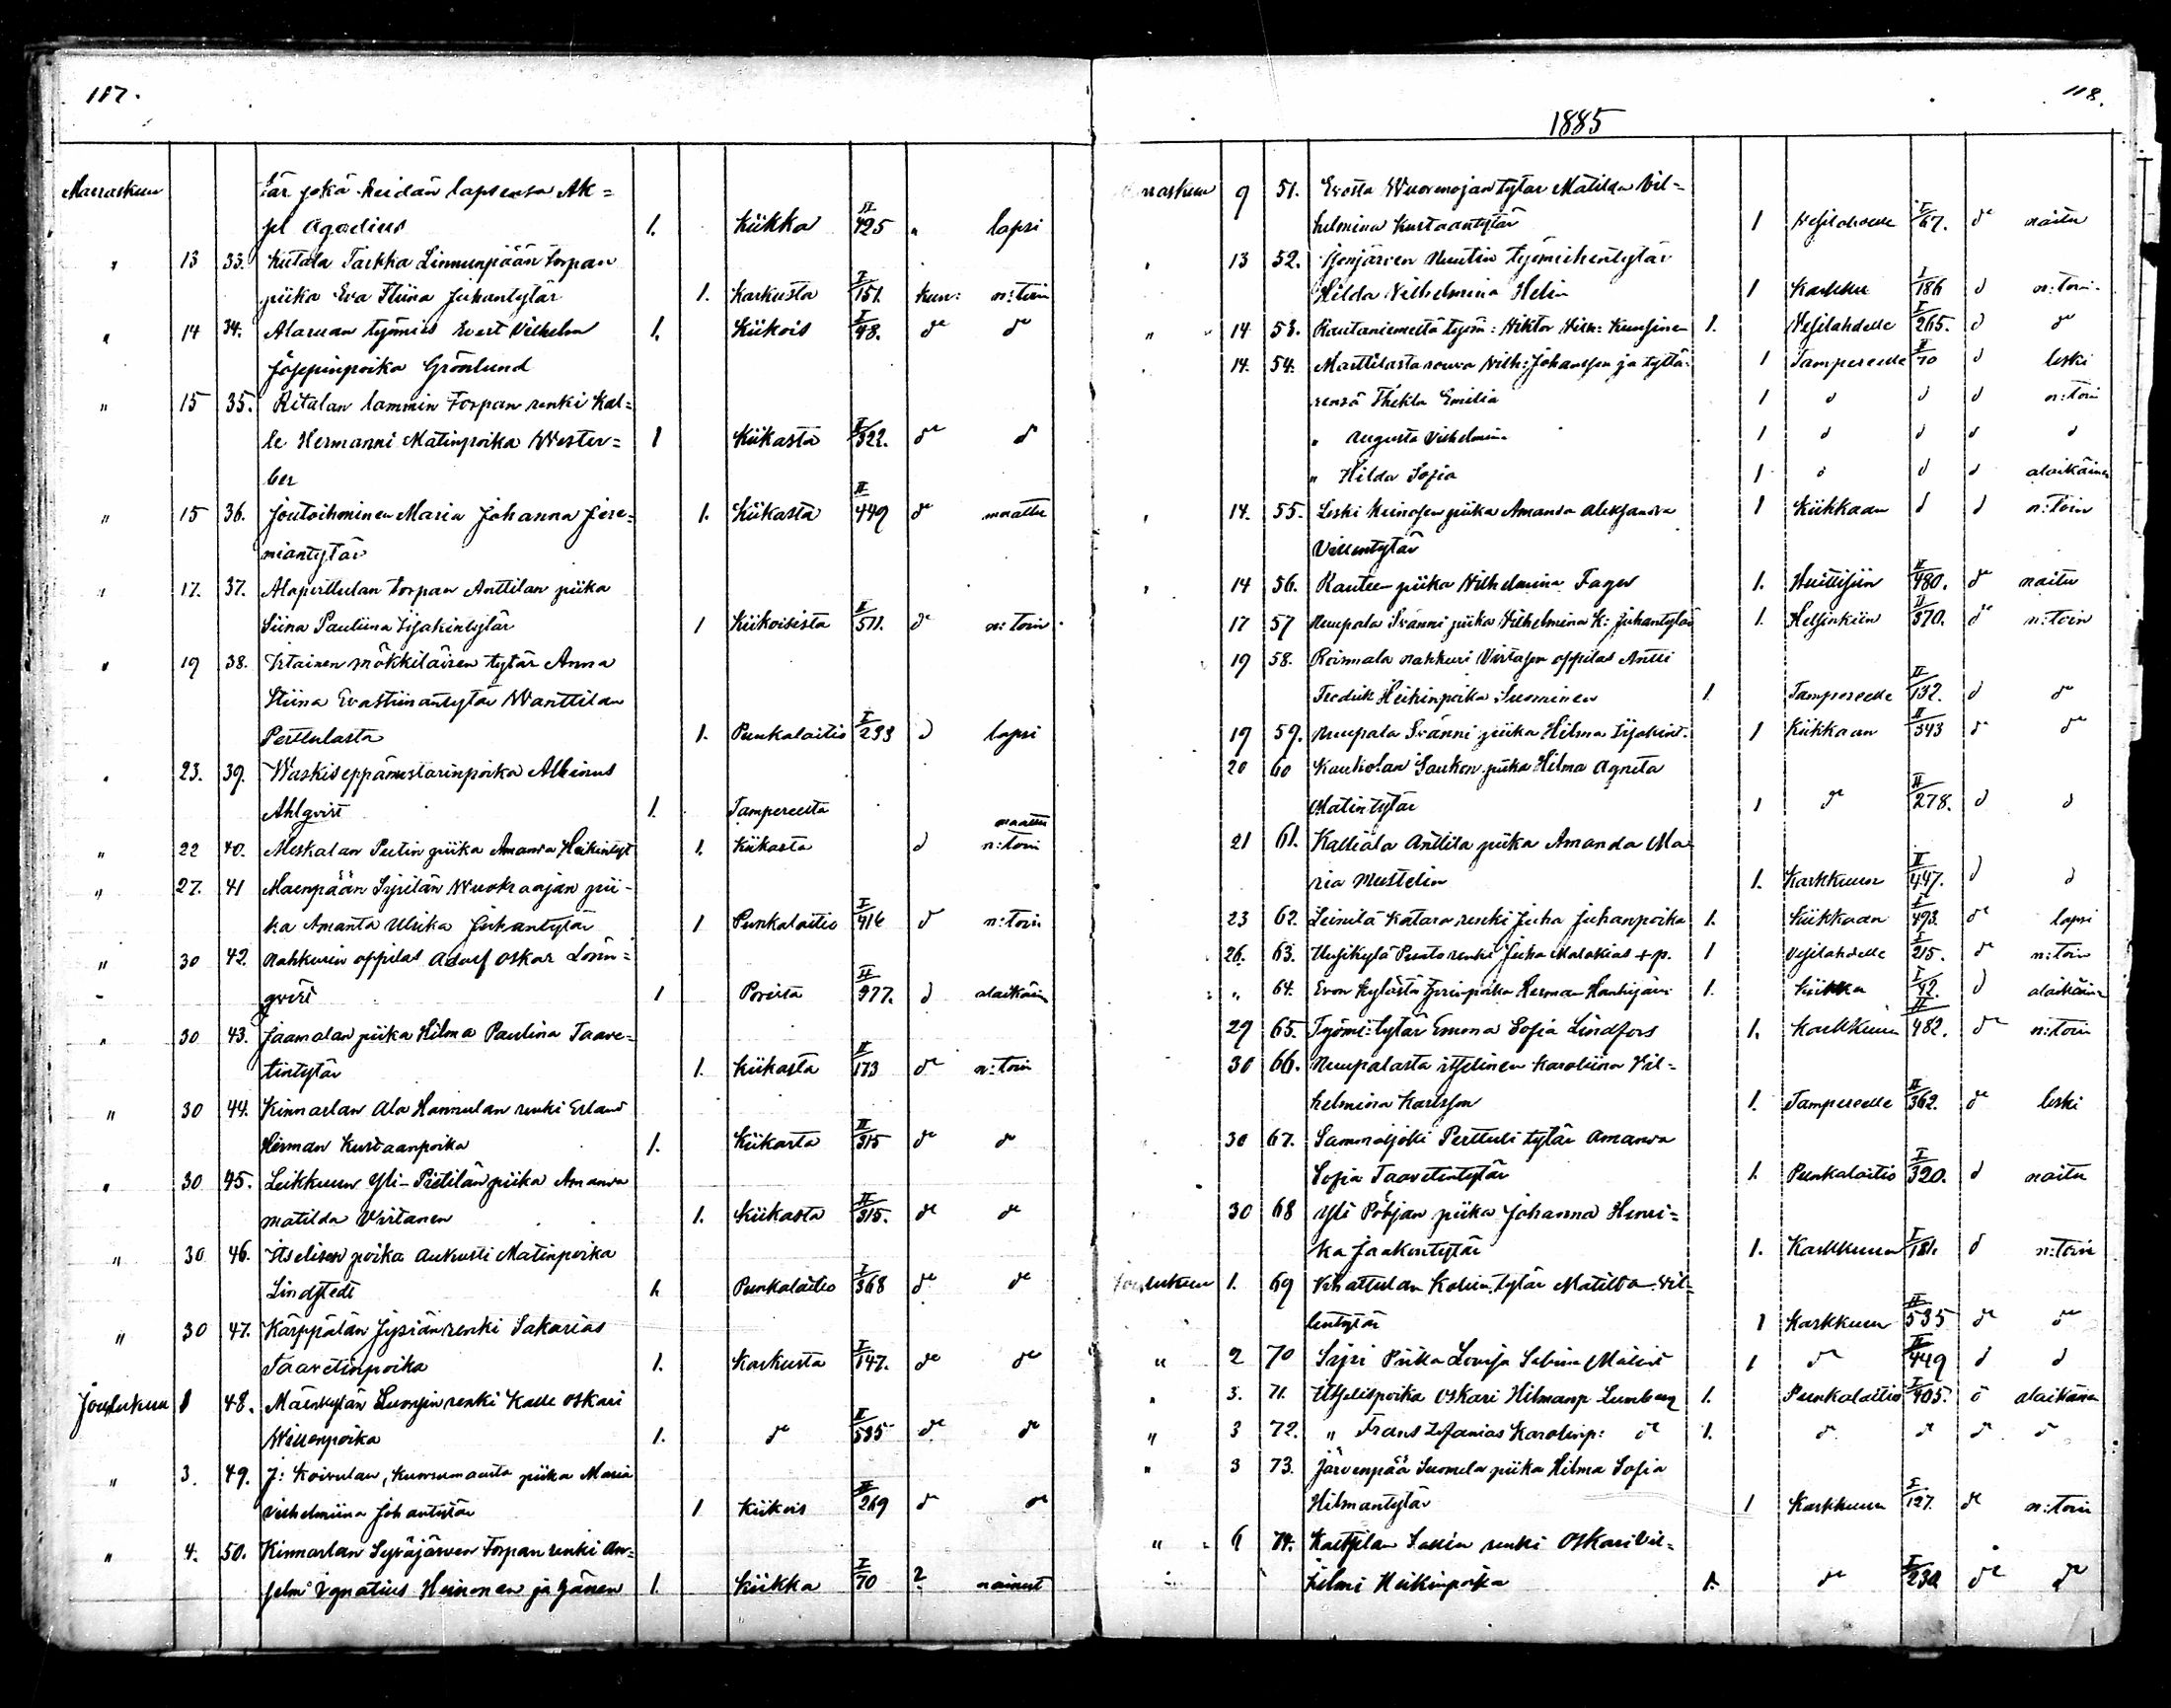 117.
Marraskuu tär jokä heidän lapsensa Ak=
sel Agadius 1. Kiikka II 425 " lapsi
" 13 33. Kutala Tarkka Linnunpään torpan
piika Eva Stiina Juhantytär 1. Karkusta I 151. kun: n:toin
" 14 34. Alaruan työmies Evert Vilhelm 1. Kiikois I 48. do do
Joseppinpoika Grönlund
" 15 35. Ritalan lammin torpan renki Kal=
le Hermanni Matinpoika Wester= 1 Kiikasta I 322. do do
ber
" 15 36. Joutoihminen Maria Johanna Jere= 1. Kiikasta II 449 do naattu
miantytär
" 17. 37. Alaperttulan torpan Anttilan piika
Siina Pauliina Iisakintytär 1 Kiikoisista II 511. do n:toin
" 19 38. Irtainen mökkiläisen tytär Anna
Stiina Evastiinantytär Wanttilan
Perttulasta 1. Punkalaitio I 233 d lapsi
" 23. 39. Waskiseppämestarinpoika Albinus
Ahlqvist 1. Tampereelta
naattu
" 22 40. Meskalan Peetin piika Amanda Heikintyt 1. Kiikasta d n:toin
" 27. 41 Maenpään Sysilän Wuokraajan pii-
ka Amanta Ulrika Juhantytär 1 Punkalaitio I 416 d n:toin
" 30 42. Nahkurin oppilas Adolf Oskar Lönn=
qvist 1 Porista II 977. d alaikäin
" 30 43. Jaamalan piika Hilma Paulina Taave=
tintytär 1. Kiikasta II 173 do n:toin
" 30 44. Kinnarlan Ala Hannulan renki Erland
Herman Kustaanpoika 1. Kiikasta II 315 do do
" 30 45. Leikkuun Yli-Pietilän piika Amanda
Matilda Virtanen 1. Kiikasta II 315. do do
" 30 46. Itselisen poika Aukusti Matinpoika
Lindstedt 1. Punkalaitio I 368 do do
" 30 47. Karppälän Jysiän renki Sakarias
Taavetinpoika 1. Karkusta I 147. do do
Joulukuu 1 48. Mäenkylän Luonsin renki Kalle Oskari
Willenpoika 1. do II 535 do do
" 3. 49. J: Koivulan, kunnumaasta piika Maria
Vilhelmiina Johantytär 1 Kiikois II 269 d do
" 4. 50. Kinnarlan Syväjärven torpan renki An=
selm Ygnatius Heinonen ja hänen 1. Kiikka I 70 2 nainut
118.
1885
Marraskuu 9 51. Evosta Wuorenojan tytar Matilda Vil=
helmina Kustaantytär 1 Vesilahdelle I 67. do naitu
" 13 52. Hilda Vilhelmina Helin 1 Karkku I 186 d n:toin
" 14 53. Rautaniemeltä työm: Viktor Vilh: Kuusinen 1. Vesilahdelle I 265. d do
" 14. 54. Marttilasta rouva Vilh: Johansson ja tyttä- 1 Tampereelle II 70 d leski
rensä Thekla Emilia 1 d d d n:toin
" Augusta Vilhelmina 1 d d d d
" Hilda Sofia 1 d d d alaikäinen
" 14. 55. Leski Heinosen piika Amanda Aleksandra 1 Kiikkaan d d n:toin
Villentytär
" 14 56. Rautee piika Vilhelmina Fager 1. Huittisiin II 480. do naitu
17 57 Nuupala Svänni piika Vilhelmina K: Juhantytär 1. Helsinkiin II 370. do n:toin
19 58. Roismala nahkuri Virtasen oppilas Antti
Fredrik Heikinpoika Suominen 1. Tampereelle II 132. d do
19 59. Nuupala Svänni piika Hilma Iisakint. 1 Kiikkaan II 343 do do
20 60 Kaukolan Saukon piika Hilma Agneta
Matintytär 1 do II 278. d d
21 61. Kalliala Anttila piika Amanda Ma
ria Mustelin 1. Karkkuun II 447. d d
23 62. Leinilä Katara renki Juha Juhanpoika 1. Kiikkaan I 493. do lapsi
26. 63. Uusikylä Punto renki Juha Malakias + p. 1 Vesilahdelle I 215. do n:toin
" 64. Evon kylästä poika Herman Hanhijärvi 1. Kiikka I 42. d alaikäinen
29 65. Työmi: tytär Emma Sofia Lindfors 1. Karkkuun II 482. do n:toin
30 66. Nuupalasta itsellinen Karoliina Vil=
helmiina Karlsson 1. Tampereelle II 362. do leski
30 67. Sammaljoki Perttuli tytär Amanda
Sofia Taavetintytär 1. Punkalaitio I 320. d naitu
30 68 Yli Pohjan piika Johanna Henri=
ka Jaakontytär 1. Karkkuun I 181. d n:toin
Joulukuu 1. 69 Vihattulan tytär Matilda Vil=
lentytär 1 Karkkuun II 535 do do
" 2 70 Piika Lovisa Sabina Matint 1 do II 449 d d
" 3. 71. Itselispoika Oskari Hilmanp. Lundberg 1. Punkalaitio I 405. d alaikäinen
" 3 72. " Frans Zefanias Karolinp: do 1. do do do do
" 3 73. Järvenpää Suomela piika Hilma Sofia
Hilmantytär 1 Karkkuun I 127. do n:toin
" 6 74. Kaltsilan Sallin renki Oskari Vil=
helmi Heikinpoika 1. do I 230 do do